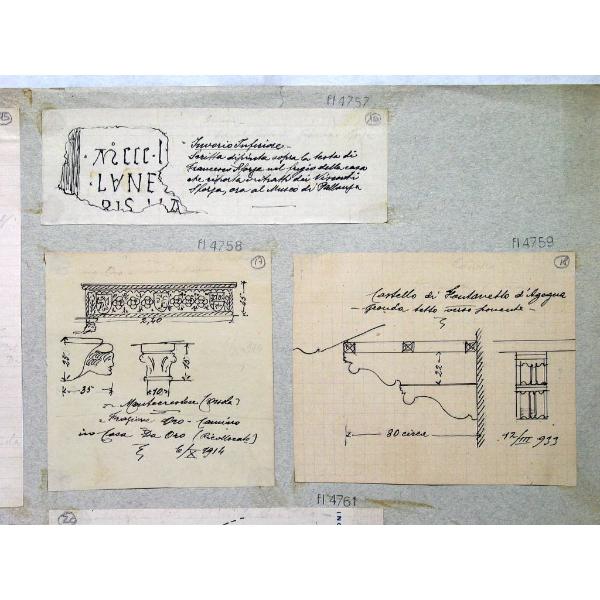 FI 4757
15
16
MCCCC·I
·LANE
- Invorio Inferiore -
Scritta dipinta sopra la testa di
Francesco Sforza nel fregio della casa
che riporta i ritratti dei Visconti
Sforza, ora al Museo di Pallanza
FI 4758
17
45
2,40
25
35
10
15
Frazione Oro - Camino
in Casa Da Oro
6/X 1914
FI 4759
18
Castello di Fontanetto d'Agogna
- Gronda tetto verso ponente -
22
80 circa
12/III 933
FI 4761
20